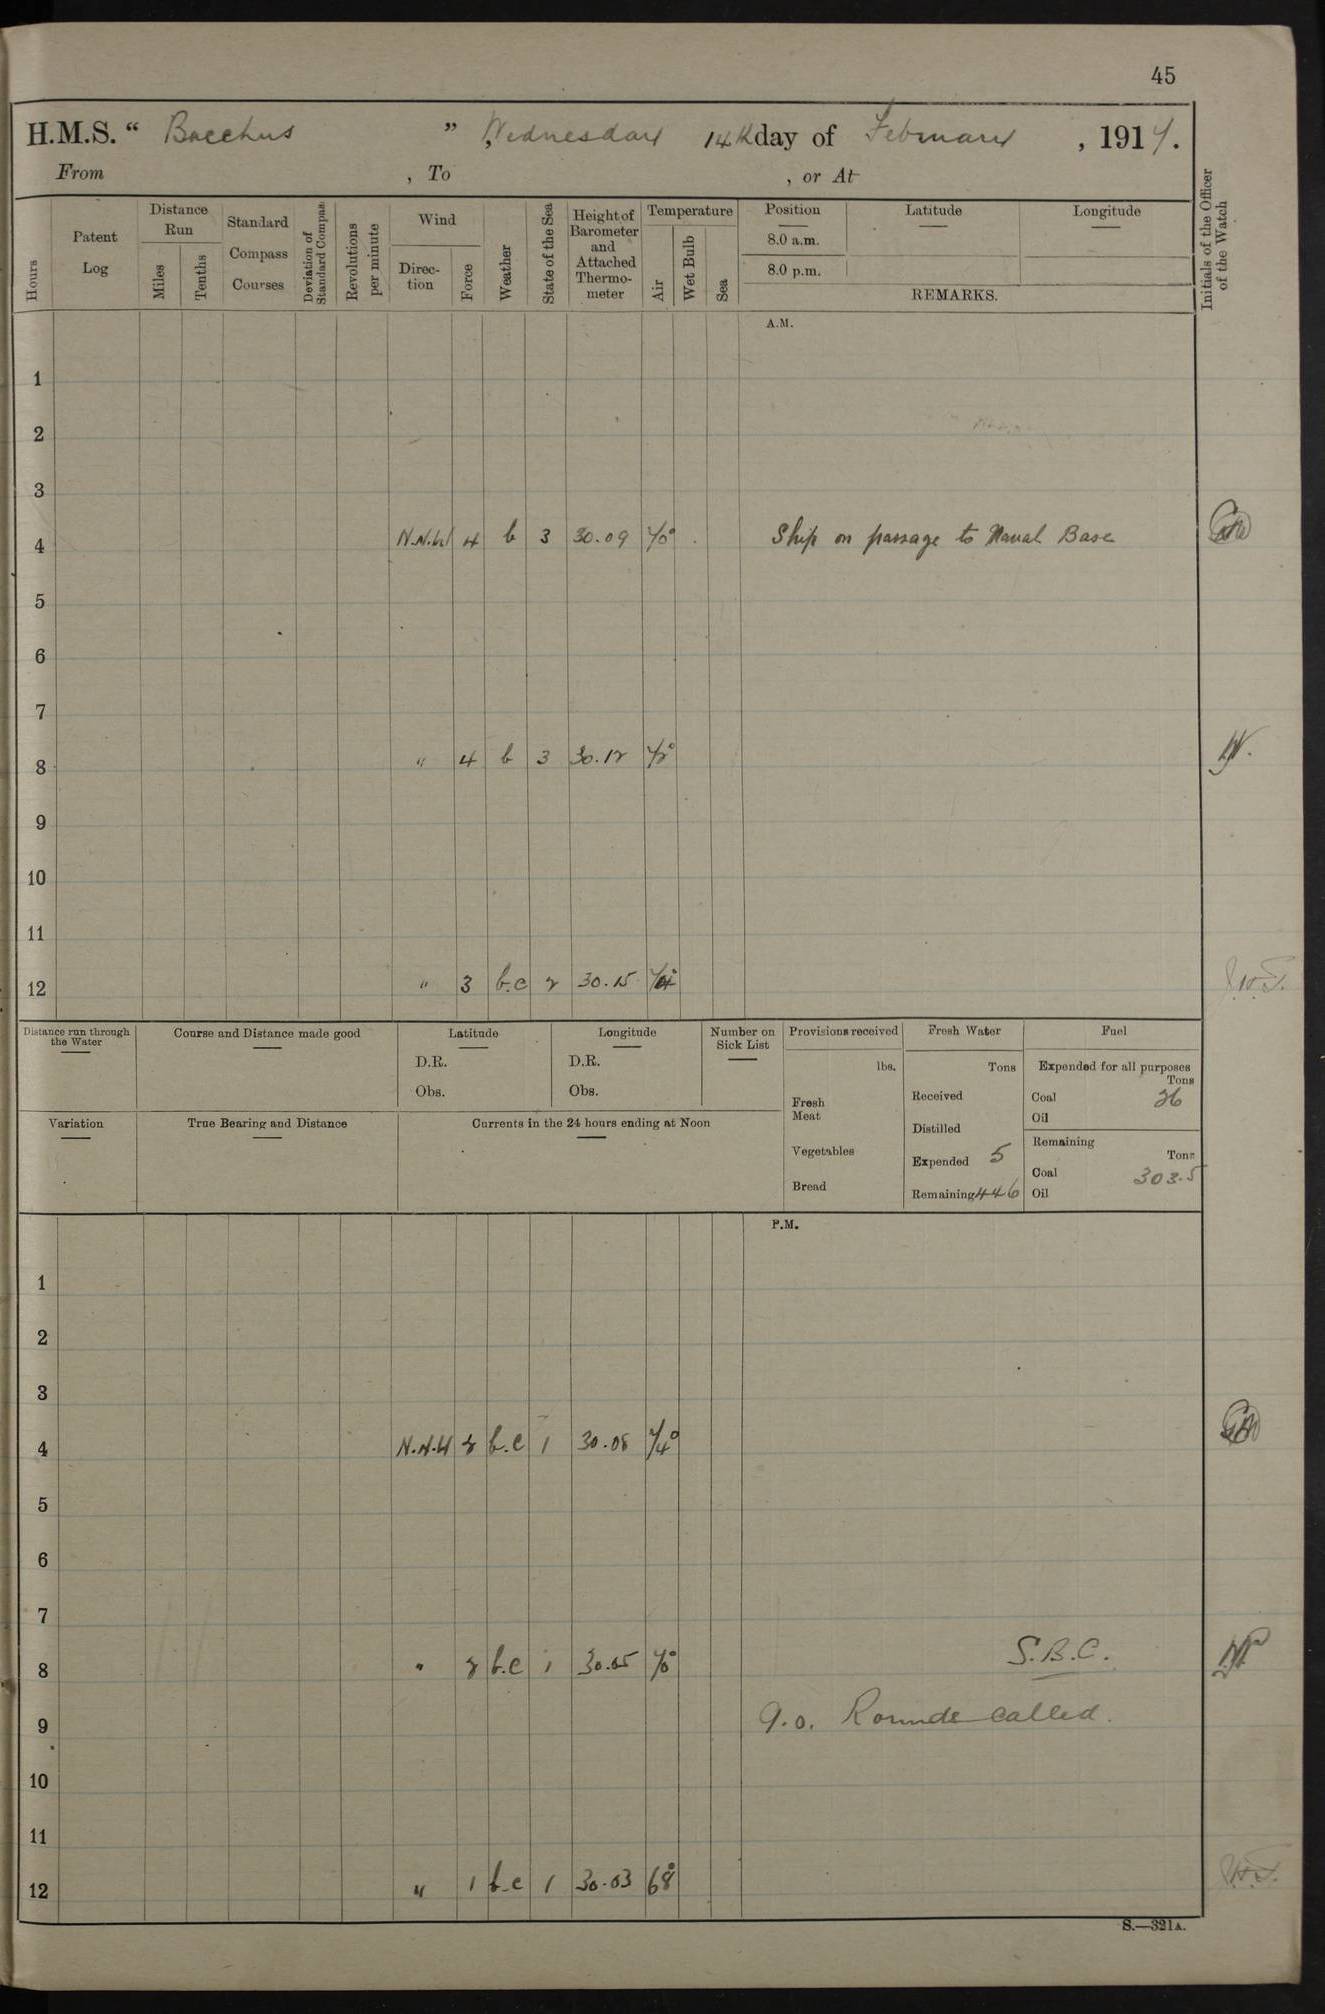 45
H.M.S. “ Bacchus ” , Wednesday 14th day of February , 1917.
From , To , or At
Hours
Patent Log
Distance Run
Miles
Tenths
Standard Compass Courses
Deviation of Standard Compass
Revolutions per minute
Wind
Direction
Force
Weather
State of the Sea
Height of Barometer and Attached Thermometer
Temperature
Air
Wet Bulb
Sea
Position
8.0 a.m.
8.0 p.m.
Latitude
Longitude
REMARKS.
Initials of the Officer of the Watch
A.M.
1
2
3
4 N.N.W 4 b 3 30.09 70° Ship on passage to Naval Base
5
6
7
8 " 4 b 3 30.12 72°
9
10
11
12 " 3 b.c 2 30.15 74°
Distance run through the Water
Course and Distance made good
Latitude
D.R.
Obs.
Longitude
D.R.
Obs.
Number on Sick List
Provisions received
lbs.
Fresh Meat
Vegetables
Bread
Fresh Water
Tons
Received
Distilled
Expended 5
Remaining 446
Fuel
Expended for all purposes
Tons
Coal 26
Oil
Remaining
Tons
Coal 303.5
Oil
Variation
True Bearing and Distance
Currents in the 24 hours ending at Noon
P.M.
1
2
3
4 N.N.W 2 b.c 1 30.08 74°
5
6
7
8 " 2 b.c 1 30.05 70° S.B.C.
9 9.0. Rounds called.
10
11
12 " 1 b.c 1 30.03 68°
S.—321A.